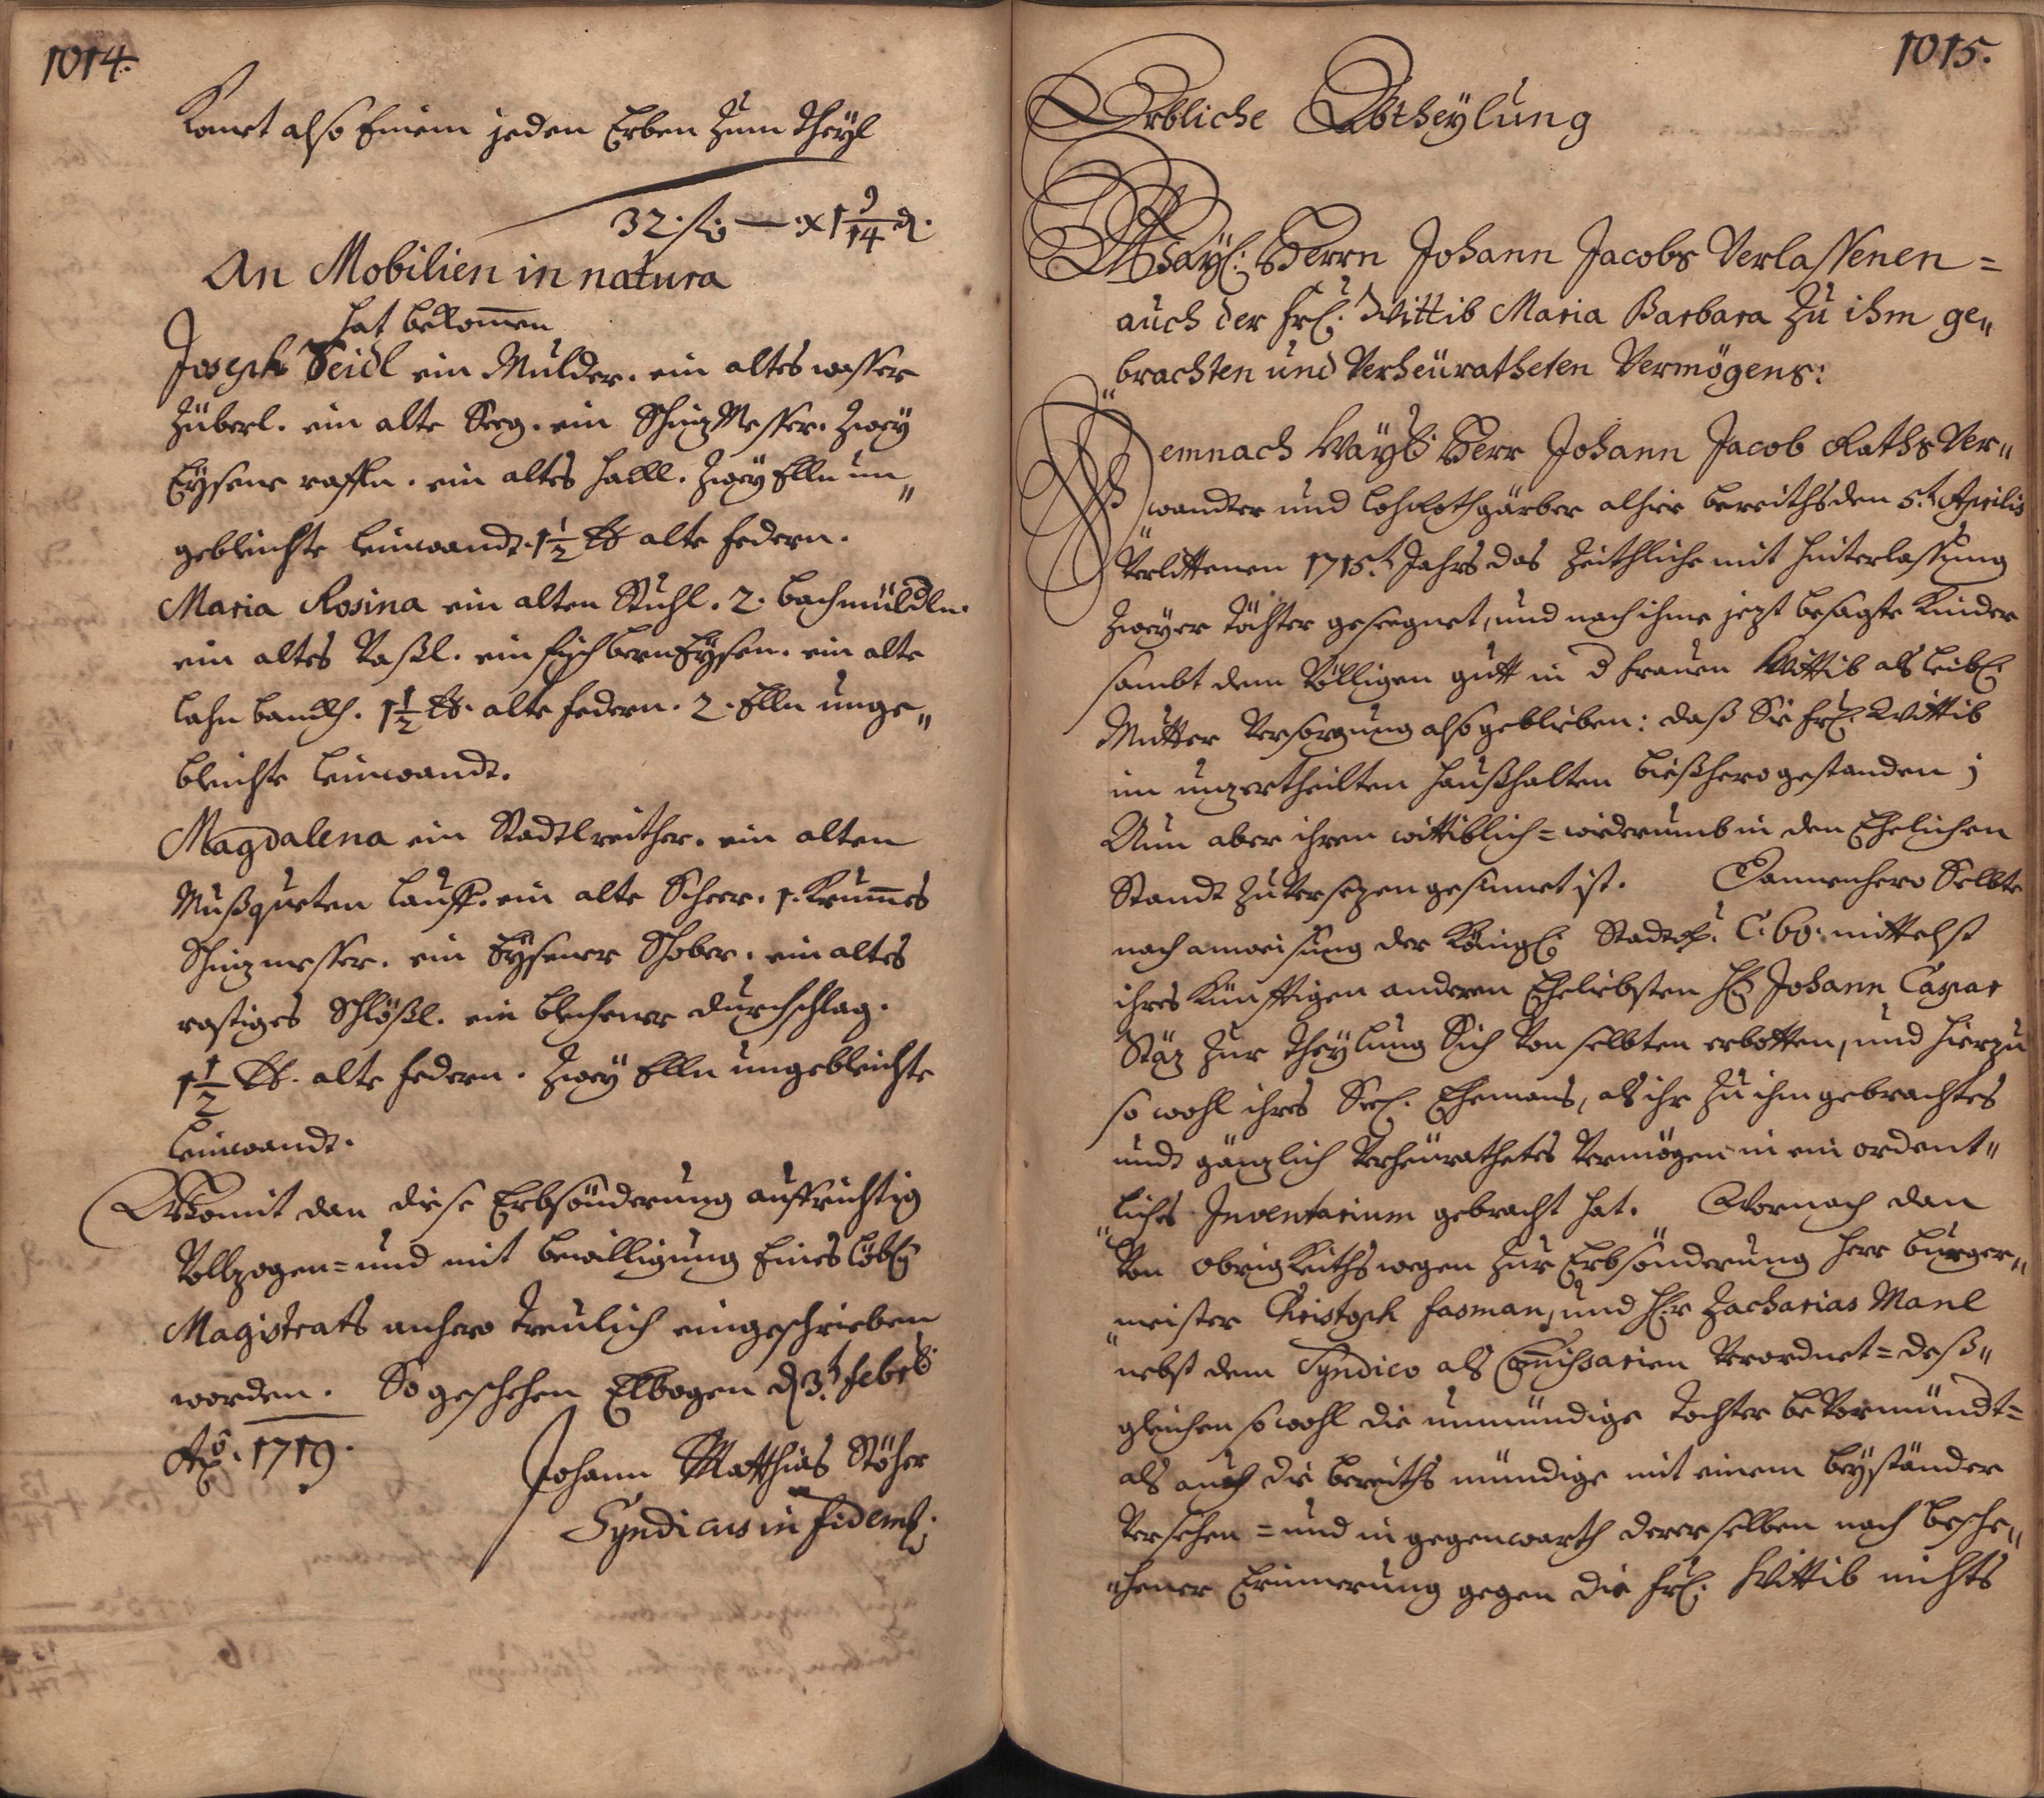 1014.
Komt also Einem jeden Erben zum Theyl
32. fl. — x 1 9/14 d.
An Mobilien in natura
hat bekom̄en
Joseph Seidl ein Mulder. ein altes wasser
Züberl. ein alte Seeg. ein Schniz Messer. Zwey
Eysene raffln. ein altes halll. Zwey Elln un„
gebleichte leinwandt. 1 1/2 ℔ alte federn.
Maria Rosina ein alten Stuhl. 2. bachmüldln.
ein altes Vaßl. ein Eysen. ein alte
1 1/2 ℔. alte federn. 2. Elln unge„
bleichte leinwandt.
Magdalena ein Stadlreither. ein alten
Mußqueten lauff. ein alte Scheer. 1. Krum̄es
Schnizmesser. ein Eysener Schober. ein altes
rostiges Schlößl. ein blechener durchschlag.
1 1/2 ℔. alte federn. Zwey Elln ungebleichte
leinwandt.
Womit dan diese Erbsönderung auffrichtig
Vollzogen= und mit bewilligung Eines Löbl:
Magistrats anhero treulich eingeschrieben
worden. So geschehen Elbogen d. 3.t febr:
Ao. 1719.
Johann Matthias Stöhr
Syndicus in fidem
1015.
Erbliche Abtheylung
Wayl: Herrn Johann Jacobs Verlassenen=
auch der frl: Wittib Maria Barbara Zu ihm ge„
„brachten und Verheüratheten Vermögens:
Demnach Wayl: Herr Johann Jacob Raths Ver„
„wandter und Lohrothgärber alhier bereiths den 5.t Aprilis
Verlittenen 1715.t Jahrs das Zeithliche mit hinterlassung
Zweyer Töchter geseegnet, und nach ihme jezt besagte Kinder
sambt dem Völligen gutt in d frauen Wittib als leibl:
Mutter Versorgung also geblieben: daß Sie frl: Wittib
im unzertheilten haußhalten bießhero gestanden;
Nun aber ihren wittiblich= wiederumb in den Ehelichen
Standt zu Versezen gesinnet ist. Dannenhero Selbte
nach anweisung der Königl: Stadt. C: 60. mittelst
ihres Künfftigen anderen Eheliebsten H: Johann Caspar
Stäz zur Theylung Sich Von selbten erbotten, und hierzu
so wohl ihres Seel. Ehemans, als ihr Zu ihm gebrachtes
undt gänzlich Verheürathetes Vermögen in ein ordent„
„liches Inventarium gebracht hat. Wornach dan
Von obrigkeiths wegen zur Erbsönderung herr burger„
„meister Christoph fasman, und Hr. Zacharias Manl
nebst dem Syndico als Com̄issarien Verordnet= deß„
gleichen so wohl die unmündige tochter beVormündt=
als auch die bereiths mündige mit einem beyständer
Versehen= und in gegenwarth derer selben nach besche„
„hener Erinnerung gegen die frl: Wittib nichts